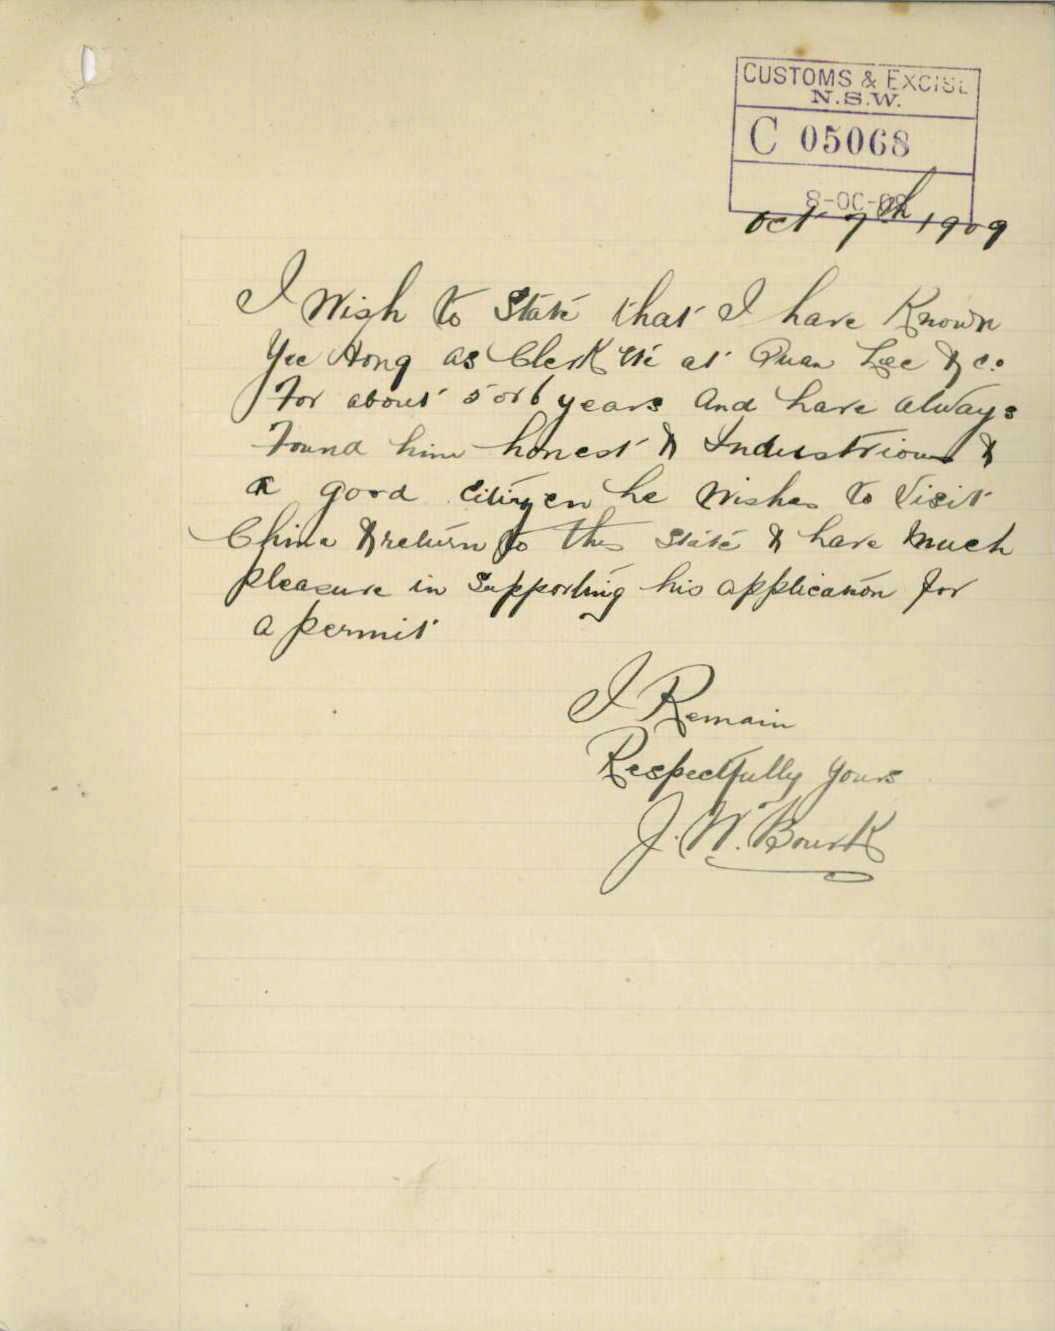 CUSTOMS & EXCISE
N.S.W.
C 05068
8-OC-09
Oct 7th 1909
I Wish to State that I have Known
Yee Hong as Clerk at Quan Lee & Co
For about 5 or 6 years and have always
Found him honest & Industrious &
a good citizen he Wishes to Visit
China & return to this State & have much
pleasure in supporting his application for
a permit
I Remain
Respectfully yours
J. W. Bourk